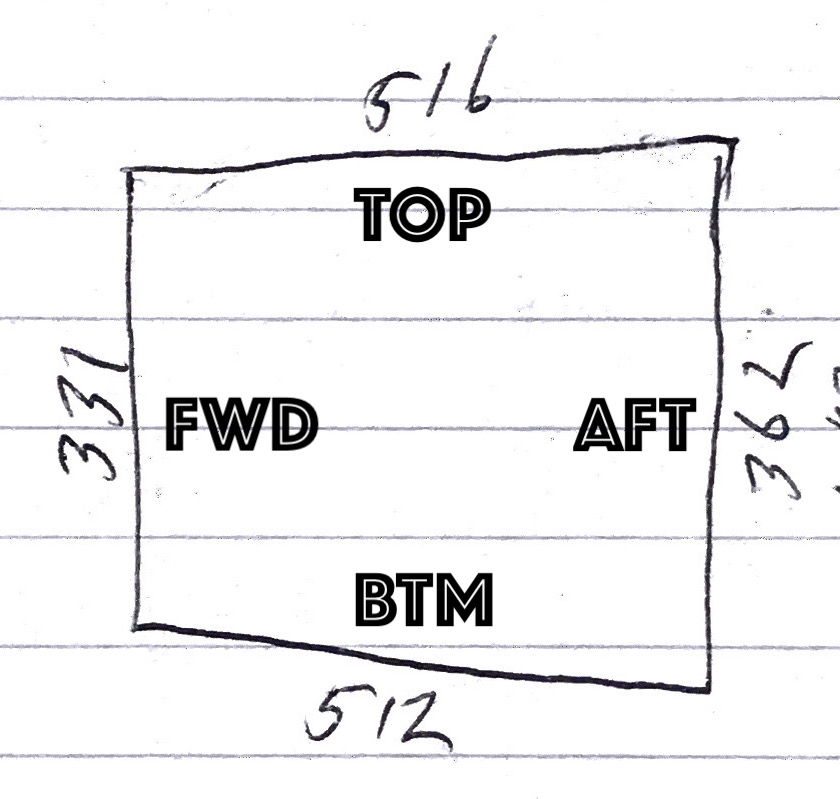 516
TOP
331
FWD
AFT
362
BTM
512